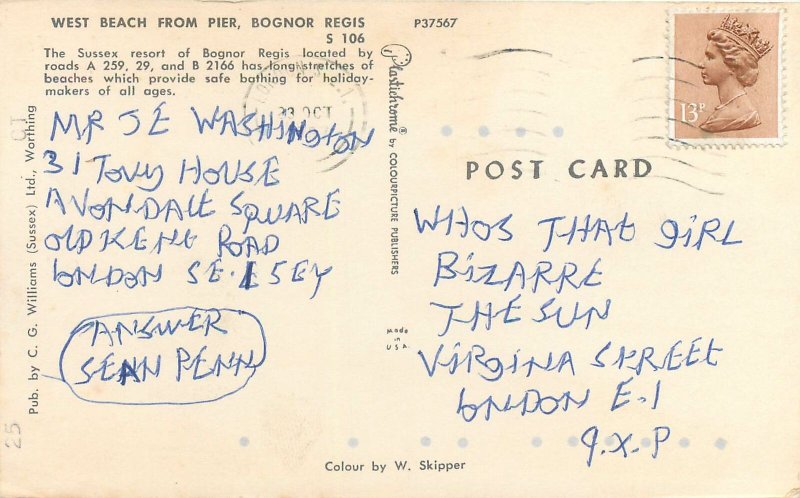 WEST BEACH FROM PIER, BOGNOR REGIS
S 106
P37567
The Sussex resort of Bognor Regis located by
roads A 259, 29, and B 2166 has long stretches of
beaches which provide safe bathing for holiday-
makers of all ages.
23 OCT
13P
MR JE WASHINGTON
31 TOVY HOUSE
AVONDALE SQUARE
OLD KENT ROAD
LONDON SE.1 5EY
ANSWER
SEAN PENN
Pub. by C. G. Williams (Sussex) Ltd., Worthing
25
Plastichrome® by COLOURPICTURE PUBLISHERS
Made in
U.S.A.
POST CARD
WHOS THAT GIRL
BIZARRE
THE SUN
VIRGINA STREET
LONDON E.1
9.X.P
Colour by W. Skipper